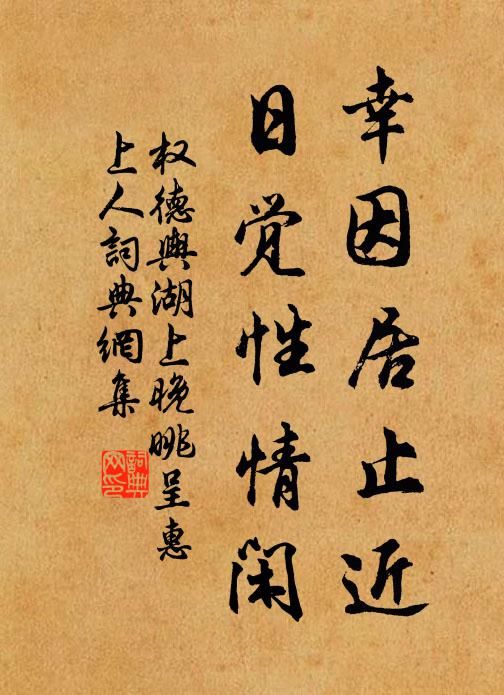 幸因居止近
日觉性情闲
权德舆湖上晚眺呈惠
上人词典網集
詞典網印